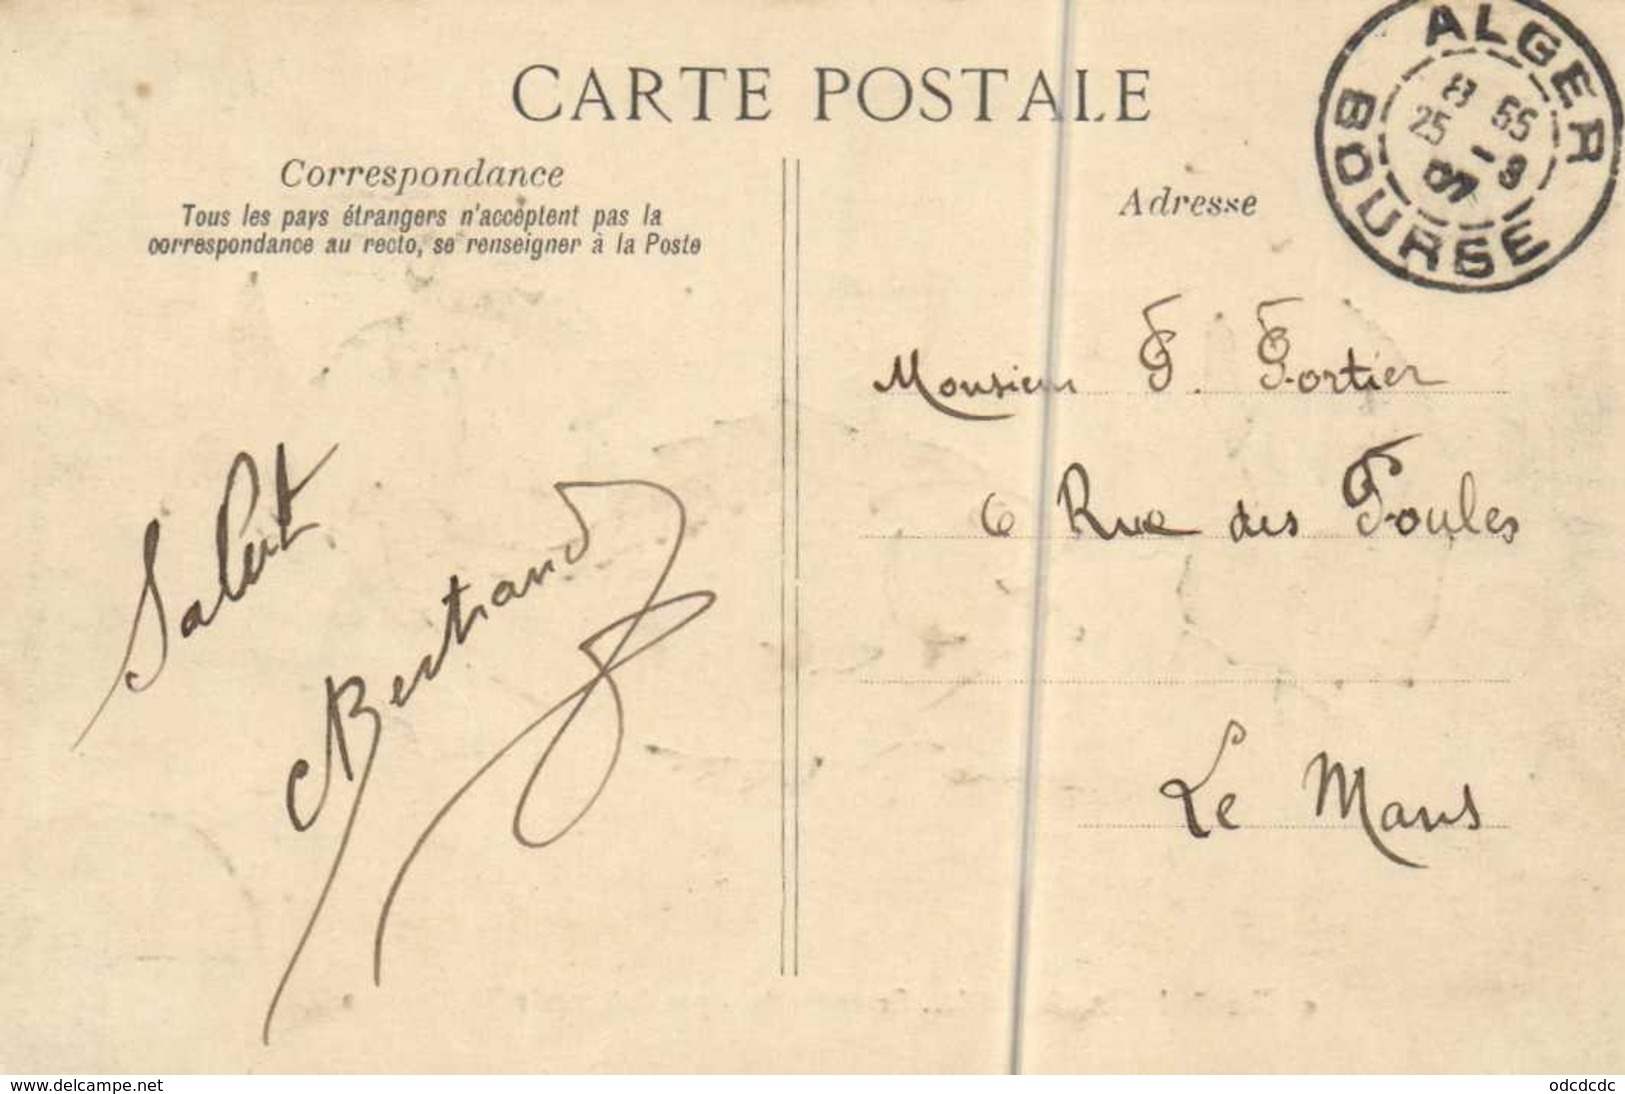 CARTE POSTALE
ALGER
BOURSE
8 55
25 -9
07
Correspondance
Tous les pays étrangers n'acceptent pas la
correspondance au recto, se renseigner à la Poste
Adresse
Salut
Bertrand
Monsieur F. Fortier
6 Rue des Foules
Le Mans
www.delcampe.net
odcdcdc